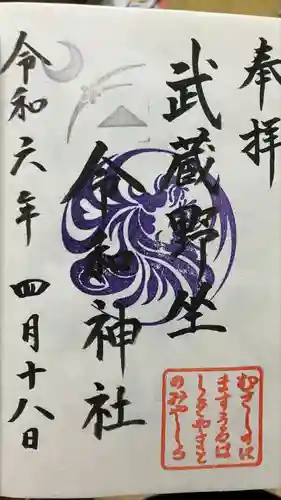 奉拝
武蔵野坐
令和神社
令和六年 四月十八日
むさしのに
ますうるは
しきやまと
のみやしろ